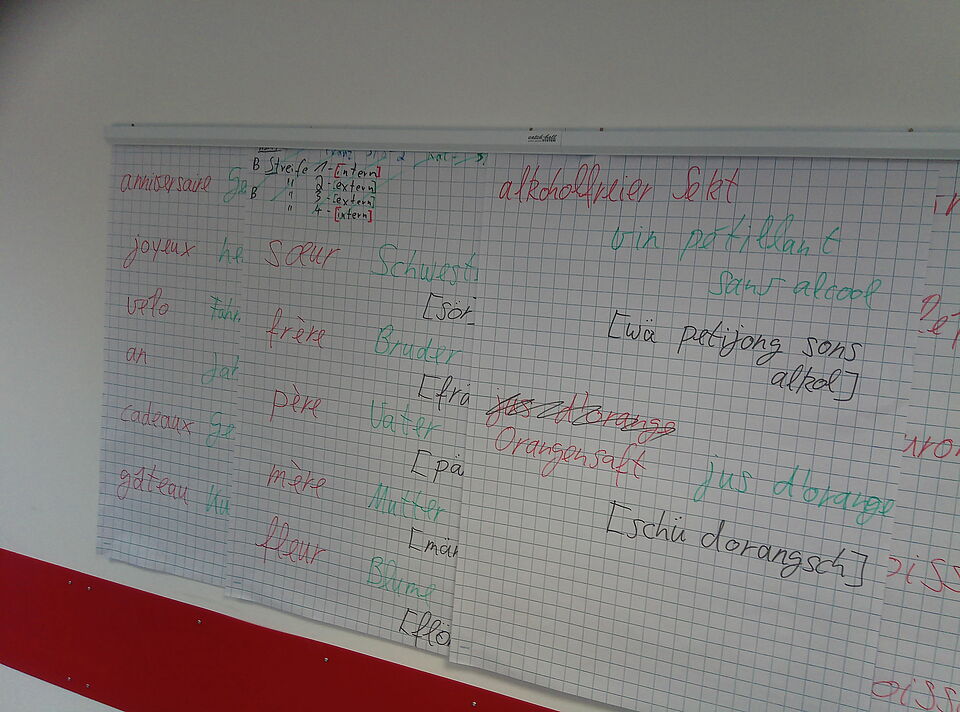 anniversaire Ge
joyeux he
vélo Fahr
an Jah
cadeaux Ge
gâteau Ku
B Streife 1-[intern]
" 2-[extern]
B " 3-[extern]
" 4-[intern]
sœur Schwest
[sör
frère Bruder
[frä
père Vater
[pä
mère Mutter
[mär
fleur Blume
[flö
alkoholfreier Sekt
vin pétillant
sans alcool
[wä petijong sons
alkol]
jus d'orange
Orangensaft
jus d'orange
[schü dorangsch]